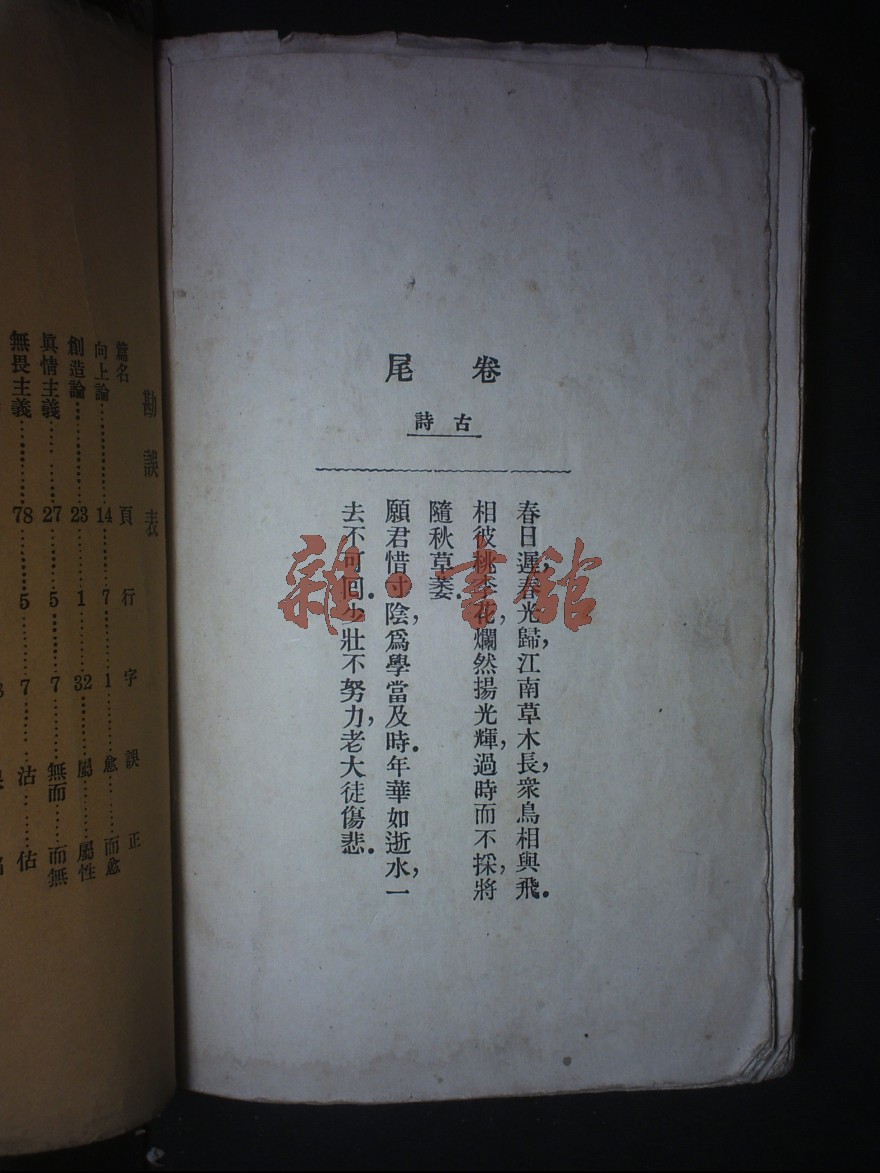 卷尾
古詩
春日遲,春光歸,江南草木長,衆鳥相與飛.
相彼桃李花,爛然揚光輝,過時而不採,將
隨秋草萋.
願君惜寸陰,爲學當及時.年華如逝水,一
去不可回.少壯不努力,老大徒傷悲.
雜·書館
勘誤表
篇名 頁 行 字 誤 正
向上論……14……7……1……愈……而愈
創造論……23……1……32……屬……屬性
眞情主義……27……5……7……無而……而無
無畏主義……78……5……7……沽……估